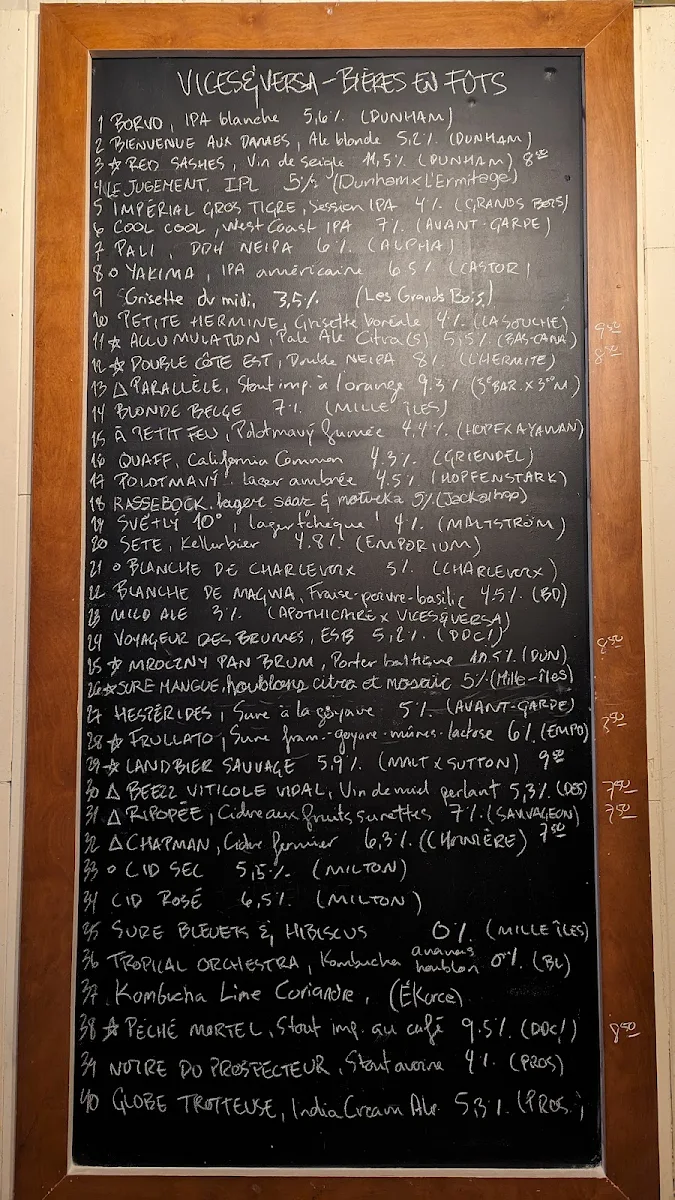 VICES & VERSA - BIÈRES EN FÛTS
1 BORVO, IPA blanche 5,6% (DUNHAM)
2 BIENVENUE AUX DAMES, Ale blonde 5,2% (DUNHAM)
3 ☆ RED SASHES, Vin de seigle 11,5% (DUNHAM) 8⁵⁰
4 LE JUGEMENT, IPL 5% (Dunham x L'Ermitage)
5 IMPÉRIAL GROS TIGRE, Session IPA 4% (GRANDS BOIS)
6 COOL COOL, West Coast IPA 7% (AVANT-GARDE)
7 PALI, DDH NEIPA 6% (ALPHA)
8 o YAKIMA, IPA américaine 6.5% (CASTOR)
9 Grisette du midi, 3,5% (Les Grands Bois)
10 PETITE HERMINE, Grisette boréale 4% (LA SOUCHE)
11 ☆ ACCUMULATION, Pale Ale Citra(s) 5,5% (BASTANA) 9⁵⁰
12 ☆ DOUBLE CÔTE EST, Double NEIPA 8% (L'HERMITE) 8⁵⁰
13 △ PARALLÈLE, Stout imp. à l'orange 9.3% (3e BAR. x 3e M)
14 BLONDE BELGE 7% (MILLE ÎLES)
15 À PETIT FEU, Polotmavý fumée 4.4% (HOPFK A YAWAN)
16 QUAFF, California Common 4.3% (GRIENDEL)
17 POLOTMAVÝ lager ambrée 4.5% (HOPFENSTARK)
18 RASSEBOCK, lager saaz & motueka 5% (Jackalhop)
19 SVĚTLY 10°, lager tchèque 4% (MALTSTRÖM)
20 SETE, Kellerbier 4.8% (EMPORIUM)
21 o BLANCHE DE CHARLEVOIX 5% (CHARLEVOIX)
22 BLANCHE DE MAGWA, Fraise-poivre-basilic 4.5% (BD)
23 MILD ALE 3% (APOTHICAIRE x VICES&VERSA)
24 VOYAGEUR DES BRUMES, ESB 5,2% (DDC!)
25 ☆ MROCZNY PAN BRUM, Porter baltique 10.5% (DUN) 8⁵⁰
26 ☆ SURE MANGUE, houblons citra et mosaic 5% (Mille-îles)
27 HESPÉRIDES, Sure à la goyave 5% (AVANT-GARDE)
28 ☆ FRULLATO, Sure fram.-goyave-mûres-lactose 6% (EMPO)
29 ☆ LANDBIER SAUVAGE 5,9% (MALT x SUTTON) 9⁵⁰
30 △ BEEZZ VITICOLE VIDAL, Vin de miel perlant 5,3% (DES) 7⁵⁰
31 △ RIPOPÉE, Cidre aux fruits surettes 7% (SAUVAGEON) 7⁵⁰
32 △ CHAPMAN, Cidre fermier 6,3% 7⁵⁰
33 o CID SEC 5,5% (MILTON)
34 CID ROSÉ 6,5% (MILTON)
35 SURE BLEUETS & HIBISCUS 0% (MILLE ÎLES)
36 TROPICAL ORCHESTRA, Kombucha ananas houblon 0% (BU)
37 Kombucha Lime Coriandre, (ÉKorce)
38 ☆ PÉCHÉ MORTEL, Stout imp. au café 9.5% (DDC!) 8⁵⁰
39 NOIRE DU PROSPECTEUR, Stout avoine 4% (PROS)
40 GLOBE TROTTEUSE, India Cream Ale 5,3% (PROS.)